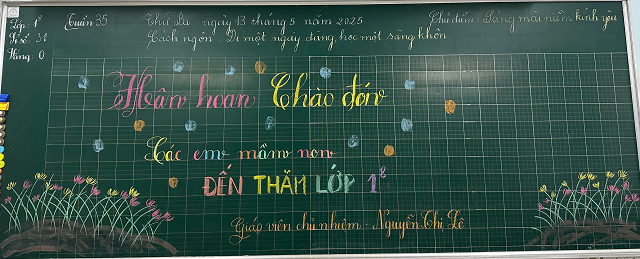 Lớp: 1⁸
Sĩ số: 31
Vắng: 0
Tuần 35
Thứ ba ngày 13 tháng 5 năm 2025
Chủ điểm: Sáng mãi niềm kính yêu
Cách ngôn: Đi một ngày đàng học một sàng khôn
Hân hoan Chào đón
Các em mầm non
ĐẾN THĂM LỚP 1⁸
Giáo viên chủ nhiệm: Nguyễn Thị Lê